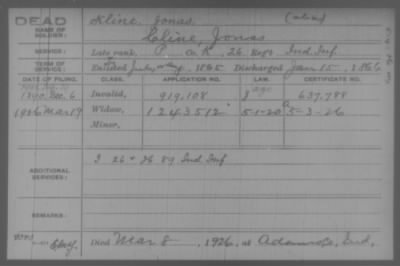 DEAD
NAME OF SOLDIER:
Kline, Jonas. (alias)
Cline, Jonas
SERVICE:
Late rank, P Co. K, 26 Regt. Ind. Inf.
TERM OF SERVICE:
Enlisted July, 1865 Discharged Jan 15, 1866
DATE OF FILING. CLASS. APPLICATION NO. LAW. CERTIFICATE NO.
1890, Dec. 6 Invalid, 919,108 637,788
1926 Mar 19 Widow, 1243512 5-1-20 5-3-26
Minor,
ADDITIONAL SERVICES:
I 26 + 89 Ind Inf
REMARKS:
Died Mar 8, 1926, at Ind.